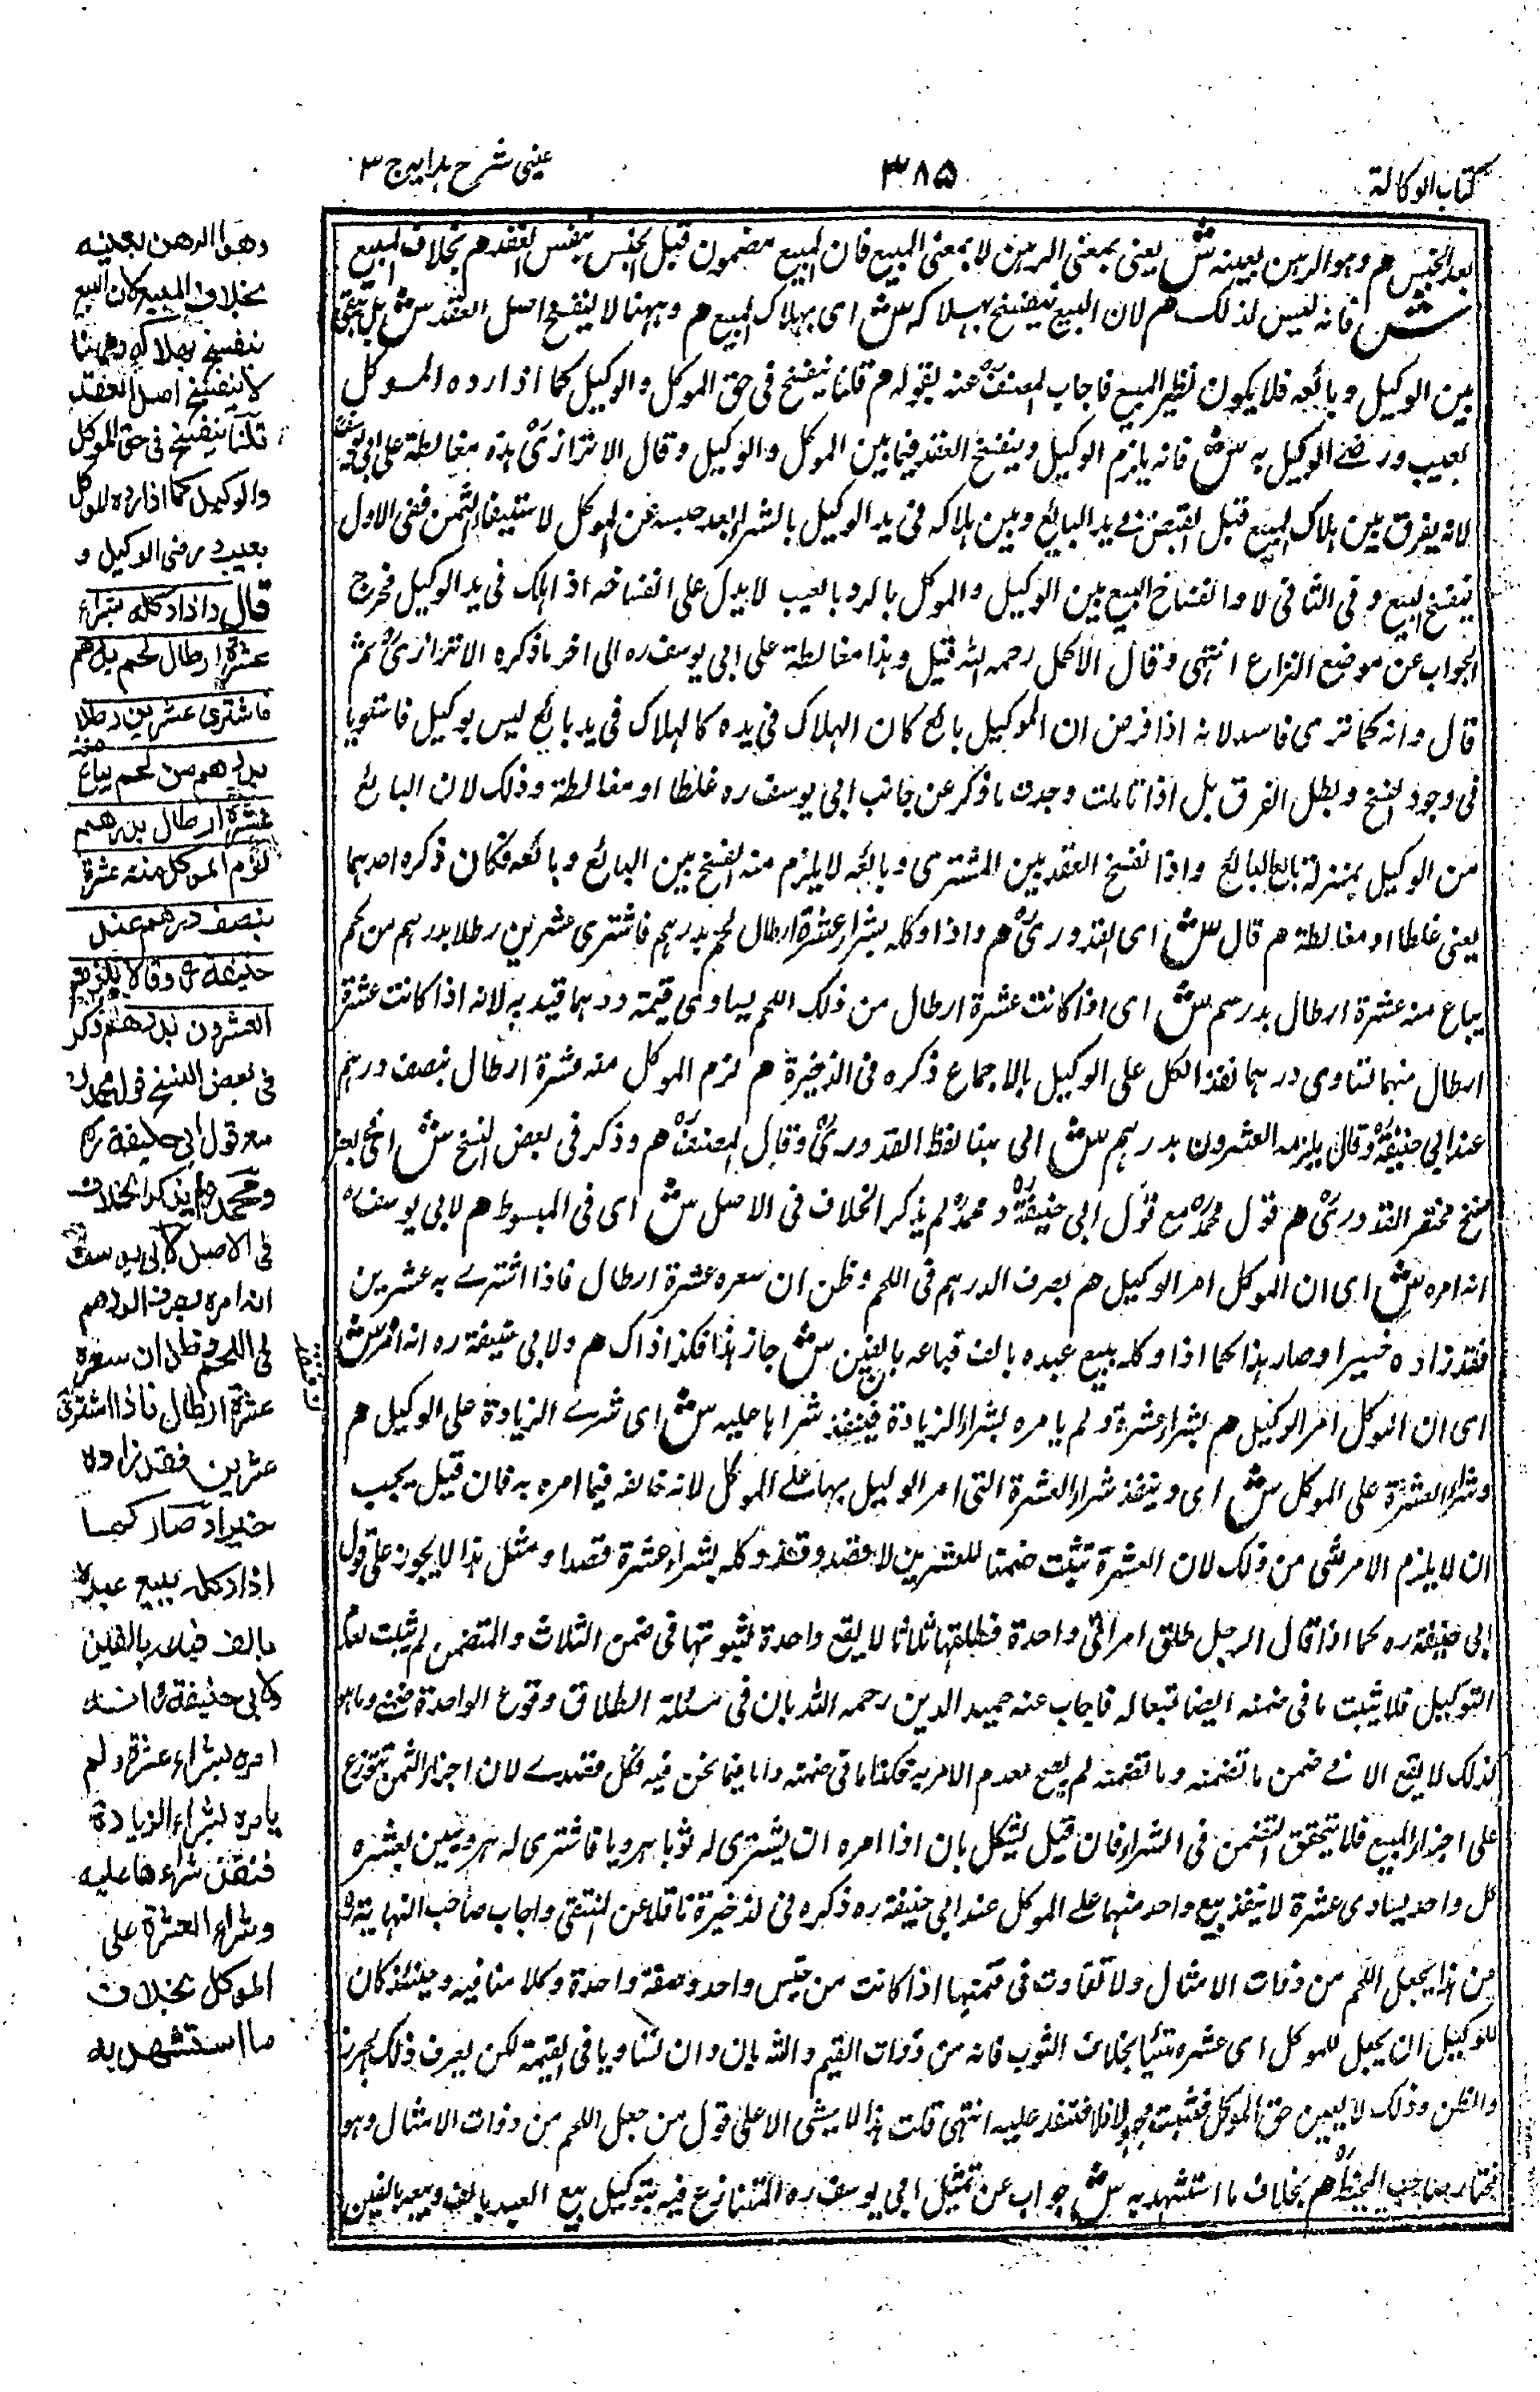 كتاب الوكالة
٣٨٥
عينى شرح هدايه ج ٣
بعد الحبس هم وهو الرهن بعينه ش يعنى بمعنى الرهن لا بمعنى المبيع فان المبيع مضمون قبل الحبس بنفس العقد هم بخلاف المبيع
ش فانه ليس كذلك هم لان البيع ينفسخ بهلاكه ش اى بهلاك المبيع هم وههنا لا ينفسخ اصل العقد ش بل يبقى
بين الوكيل وبائعه فلا يكون نظير المبيع فاجاب المصنفؒ عنه بقوله هم قلنا ينفسخ فى حق الموكل والوكيل كما اذا رده الموكل
بعيب ورضى الوكيل به ش فانه يلزم الوكيل وينفسخ العقد فيما بين الموكل والوكيل وقال الاترازىؒ هذه مغالطة على ابى يوسفؒ
لانه يفرق بين هلاك المبيع قبل القبض فى يد البائع وبين هلاكه فى يد الوكيل بالشراء بعد حبسه عن الموكل لاستيفاء الثمن ففى الاول
ينفسخ البيع وفى الثانى لا وانفساخ البيع بين الوكيل والموكل بالرد بالعيب لا يدل على انفساخه اذا هلك فى يد الوكيل فخرج
الجواب عن موضع النزاع انتهى وقال الاكمل رحمه الله قيل وهذا مغالطة على ابى يوسف ره الى اخر ما ذكره الاترازىؒ ثم
قال وانه كما ترى فاسد لانه اذا فرض ان الوكيل بائع كان الهلاك فى يده كالهلاك فى يد بائع ليس بوكيل فاستويا
فى وجود الفسخ وبطل الفرق بل اذا تاملت وجدت ما ذكر عن جانب ابى يوسف ره غلطا او مغالطة وذلك لان البائع
من الوكيل بمنزلة بائع البائع واذا انفسخ العقد بين المشترى وبائعه لا يلزم منه الفسخ بين البائع وبائعه فكان ذكره احدهما
يعنى غلطا او مغالطة هم قال ش اى القدورىؒ هم واذا وكله بشراء عشرة ارطال لحم بدرهم فاشترى عشرين رطلا بدرهم من لحم
يباع منه عشرة ارطال بدرهم ش اى اذا كانت عشرة ارطال من ذلك اللحم يساوى قيمته درهما قيد به لانه اذا كانت عشرة
ارطال منهما تساوى درهما نفذ الكل على الوكيل بالاجماع ذكره فى الذخيرة هم لزم الموكل منه عشرة ارطال بنصف درهم
عند ابى حنيفةؒ وقالا يلزمه العشرون بدرهم ش الى هنا لفظ القدورىؒ وقال المصنفؒ هم وذكر فى بعض النسخ ش اى بعض
نسخ مختصر القدورىؒ هم قول محمدؒ مع قول ابى حنيفةؒ ومحمدؒ لم يذكر الخلاف فى الاصل ش اى فى المبسوط هم لابى يوسفؒ
انه امره ش اى ان الموكل امر الوكيل هم بصرف الدرهم فى اللحم وظن ان سعره عشرة ارطال فاذا اشترى به عشرين
فقد زاده خيرا وصار هذا كما اذا وكله ببيع عبده بالف فباعه بالفين ش جاز هذا فكذا ذاك هم ولابى حنيفة ره انه امره ش
اى ان الموكل امر الوكيل هم بشراء عشرة ولم يامره بشراء الزيادة فينفذ شراها عليه ش اى شرى الزيادة على الوكيل هم
وشراء العشرة على الموكل ش اى وينفذ شراء العشرة التى امر الوكيل بها على الموكل لانه خالفه فيما امره به فان قيل يجب
ان لا يلزم الامر شى من ذلك لان العشرة تثبت ضمنا للعشرين لا قصدا وقد وكله بشراء عشرة قصدا ومثل هذا لا يجوز على قول
ابى حنيفة ره كما اذا قال الرجل طلق امراتى واحدة فطلقها ثلاثا لا يقع واحدة لثبوتها فى ضمن الثلاث والمتضمن لم يثبت لعدم
التوكيل فلا يثبت ما فى ضمنه ايضا تبعا له فاجاب عنه حميد الدين رحمه الله بان فى مسئلة الطلاق وقوع الواحدة ضمنى وما هو
كذلك لا يقع الا فى ضمن ما تضمنه وما تضمنه لم يصح لعدم الامر به فكذا ما فى ضمنه واما فيما نحن فيه فكل قصدى لان اجزاء الثمن تتوزع
على اجزاء المبيع فلا يتحقق التضمن فى الشراء فان قيل يشكل بان اذا امره ان يشترى له ثوبا هرويا فاشترى له هرويين بعشره
كل واحد يساوى عشرة لا ينفذ بيع واحد منهما على الموكل عند ابى حنيفة ره ذكره فى الذخيرة ناقلا عن المنتقى واجاب صاحب النهاية
من هذا بجعل اللحم من ذوات الامثال ولا تفاوت فى قيمتها اذا كانت من جنس واحد وصفة واحدة وكلامنا فيه وحينئذ كان
للوكيل ان يجعل للموكل اى عشره شيئا بخلاف الثوب فانه من ذوات القيم والثوبان وان تساويا فى القيمة لكن يعرف ذلك بالحرز
والظن وذلك لا يعين حق الموكل فثبت مجهولا فلا فتنفذ عليه انتهى قلت هذا لا يمشى الا على قول من جعل اللحم من ذوات الامثال وهو
مختار صاحب المحيطؒ هم بخلاف ما استشهد به ش جواب عن تمثيل ابى يوسف ره المتنازع فيه بتوكيل بيع العبد بالف وبيعه بالفين
وهو الرهن بعينه
بخلاف المبيع لان البيع
ينفسخ بهلاكه وههنا
لا ينفسخ اصل العقد
قلنا ينفسخ فى حق الموكل
والوكيل كما اذا رده الموكل
بعيب ورضى الوكيل و
قال واذا وكله بشراء
عشرة ارطال لحم بدرهم
فاشترى عشرين رطلا
بدرهم من لحم يباع منه
عشرة ارطال بدرهم
لزم الموكل منه عشرة
بنصف درهم عند
حنيفةؒ وقالا يلزمه
العشرون بدرهم ذكر
فى بعض النسخ قول محمدؒ
مع قول ابى حنيفةؒ
ومحمد لم يذكر الخلاف
فى الاصل لابى يوسفؒ
انه امره بصرف الدرهم
فى اللحم وظن ان سعره
عشرة ارطال فاذا اشترى
عشرين فقد زاده
خيرا وصار كما
اذا وكله ببيع عبده
بالف فباعه بالفين
ولابى حنيفةؒ انه
امره بشراء عشرة ولم
يامره بشراء الزيادة
فنفذ شراءها عليه
وشراء العشرة على
الموكل بخلاف
ما استشهد به